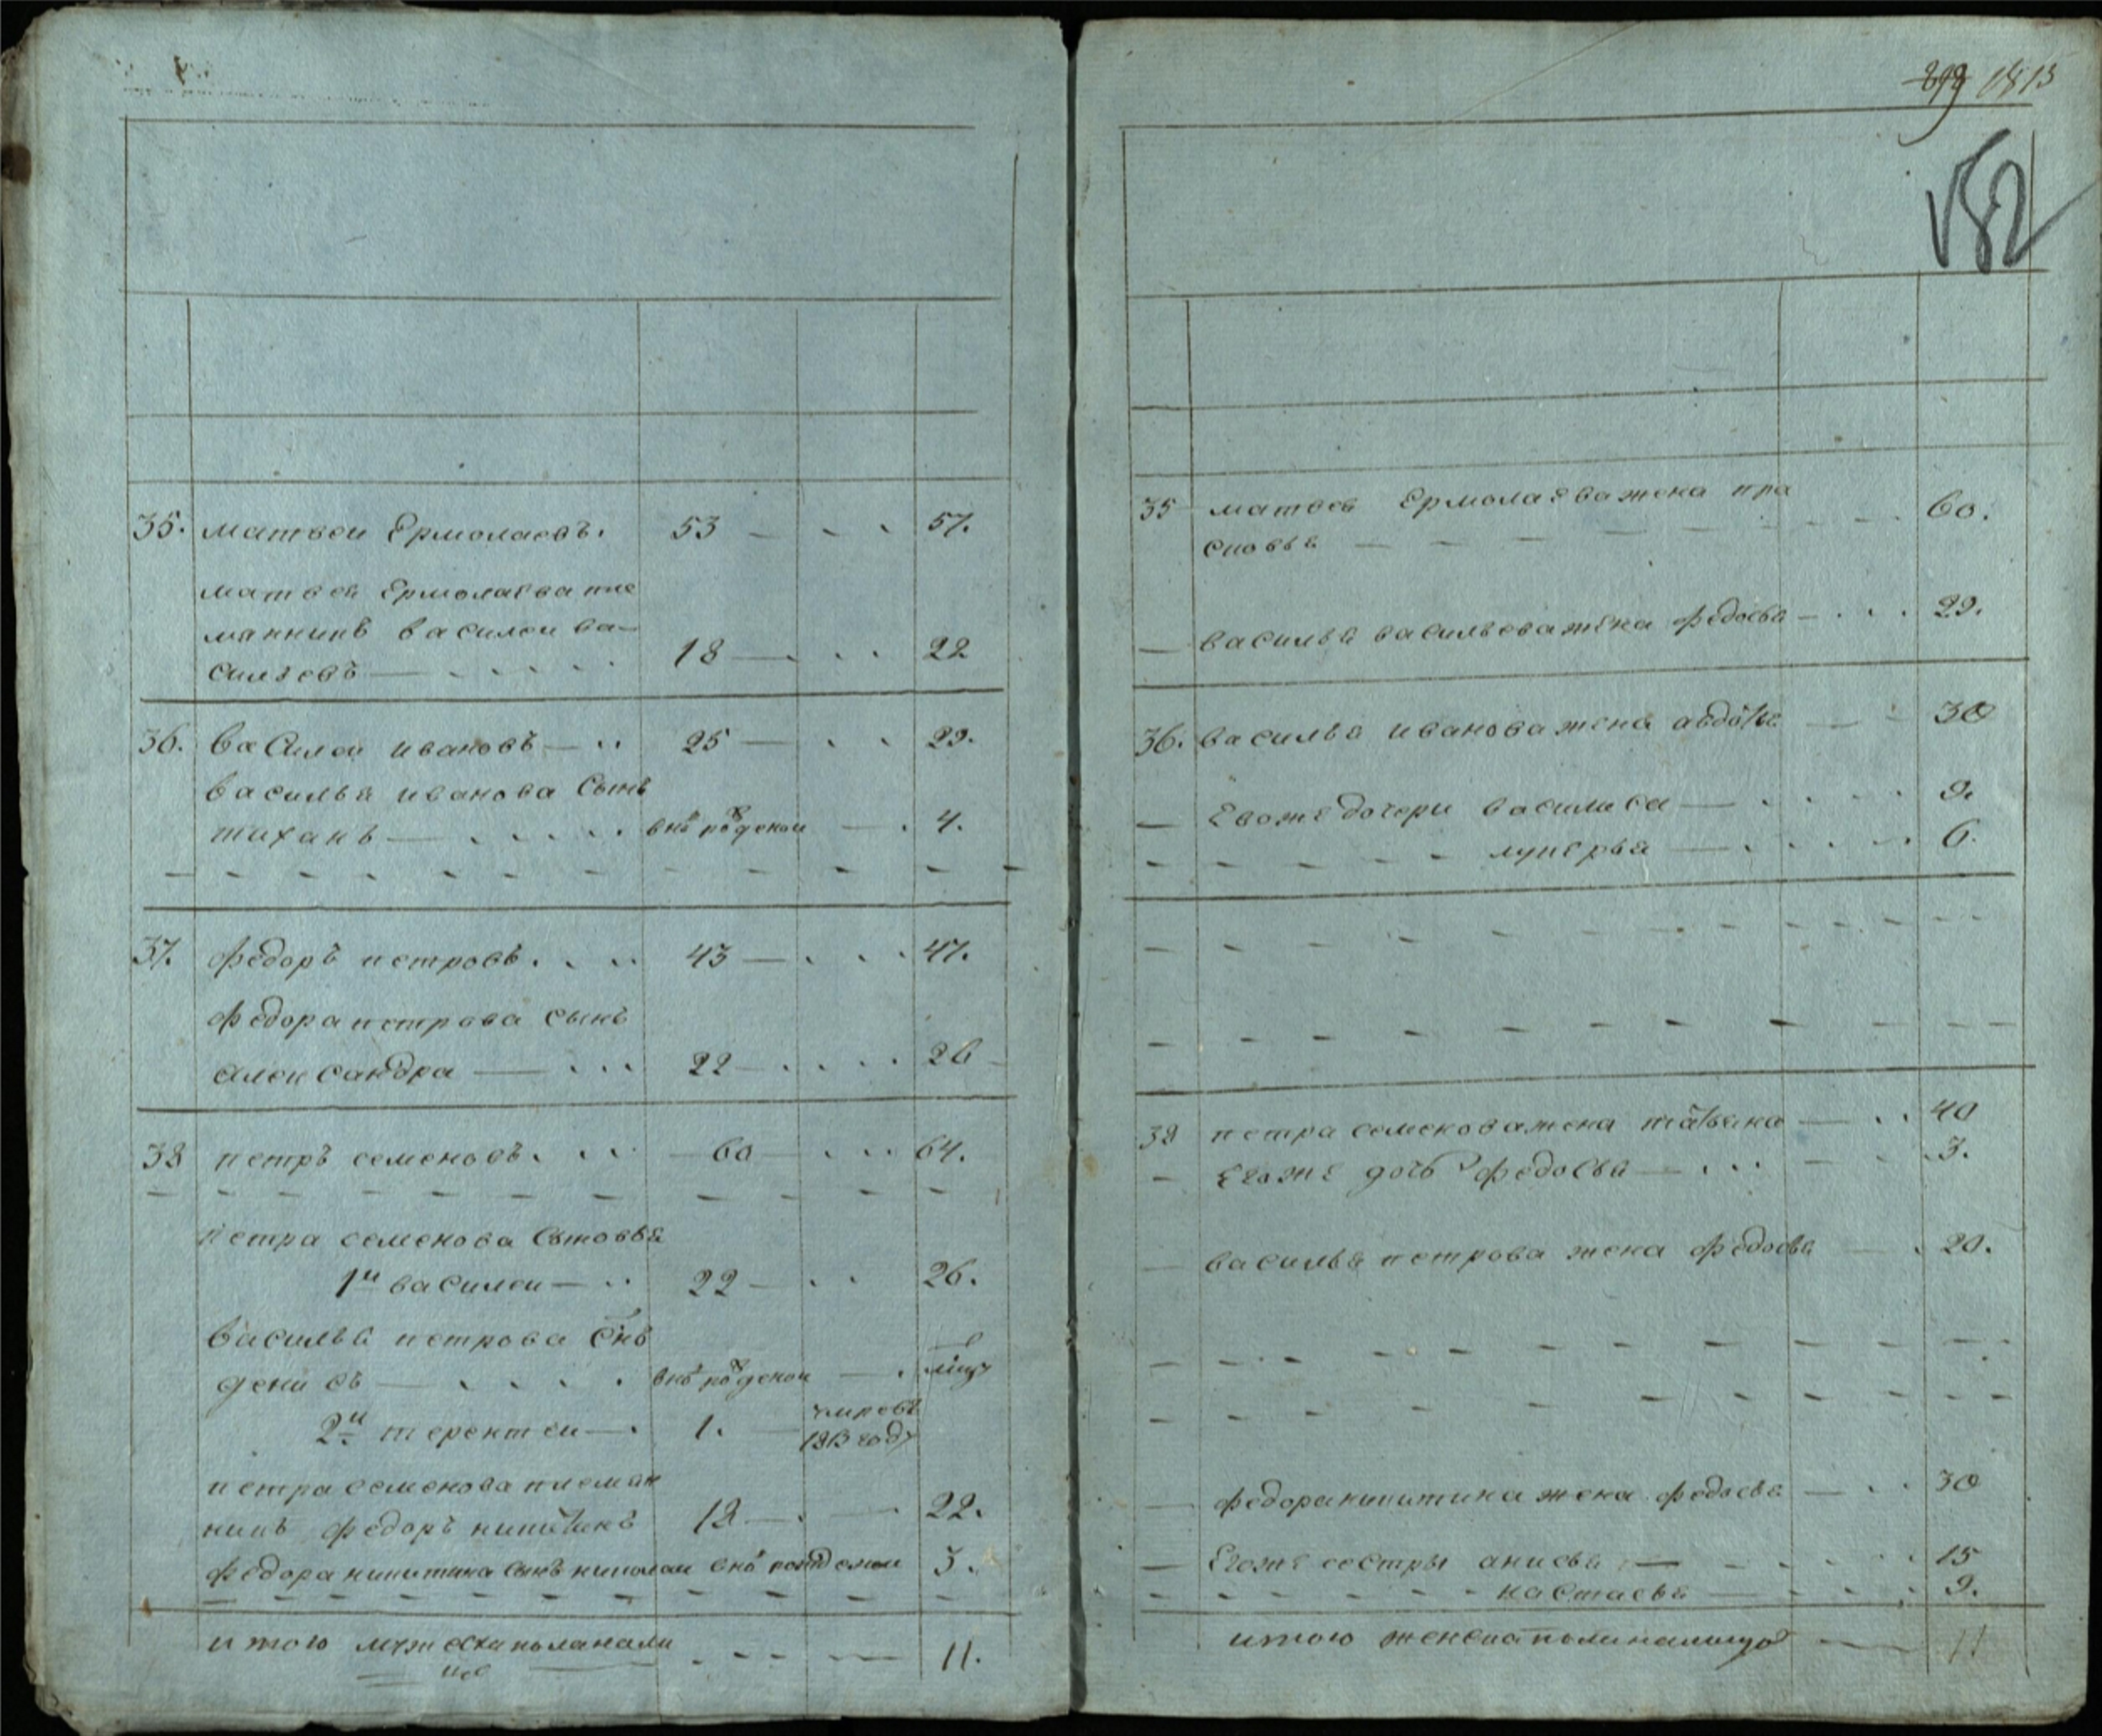 35. матвеи Ермолаевъ. 53 — 57.
матвея Ермолаева пле
манникъ василеи ва-
сильевъ — 18 — 22
36. василеи ивановъ — 25 — 29.
василья иванова сынъ
тиханъ — внѣ рожденои — 4.
37. федоръ петровъ. 43 — 47.
федора петрова сынъ
александра — 22 — 26
38 петръ семеновъ. 60 — 64.
петра семенова сыновья
1й василеи — 22 — 26.
василья петрова снъ
денисъ — внѣ рожденои —
2й терентеи — 1. умровъ
1813 году
петра семенова племян
никъ федоръ никитинъ 18 — 22.
федора никитина сынъ николаи внѣ рожденои 3.
итого мужеска пола нали
цо — 11.
1813
182
35 матвея Ермолаева жена пра
сковья — 60.
— василья васильева жена федосья — 29.
36. василья иванова жена авдотья — 30
— Евоже дочери василиса — 9.
лукерья — 6.
38 петра семенова жена татьяна — 40
— Егоже дочь федосья — 3.
— василья петрова жена федосья — 20.
— федора никитина жена федосья — 30
— Егоже сестры анисья — 15
настасья — 9.
итого женска пола налицо — 11